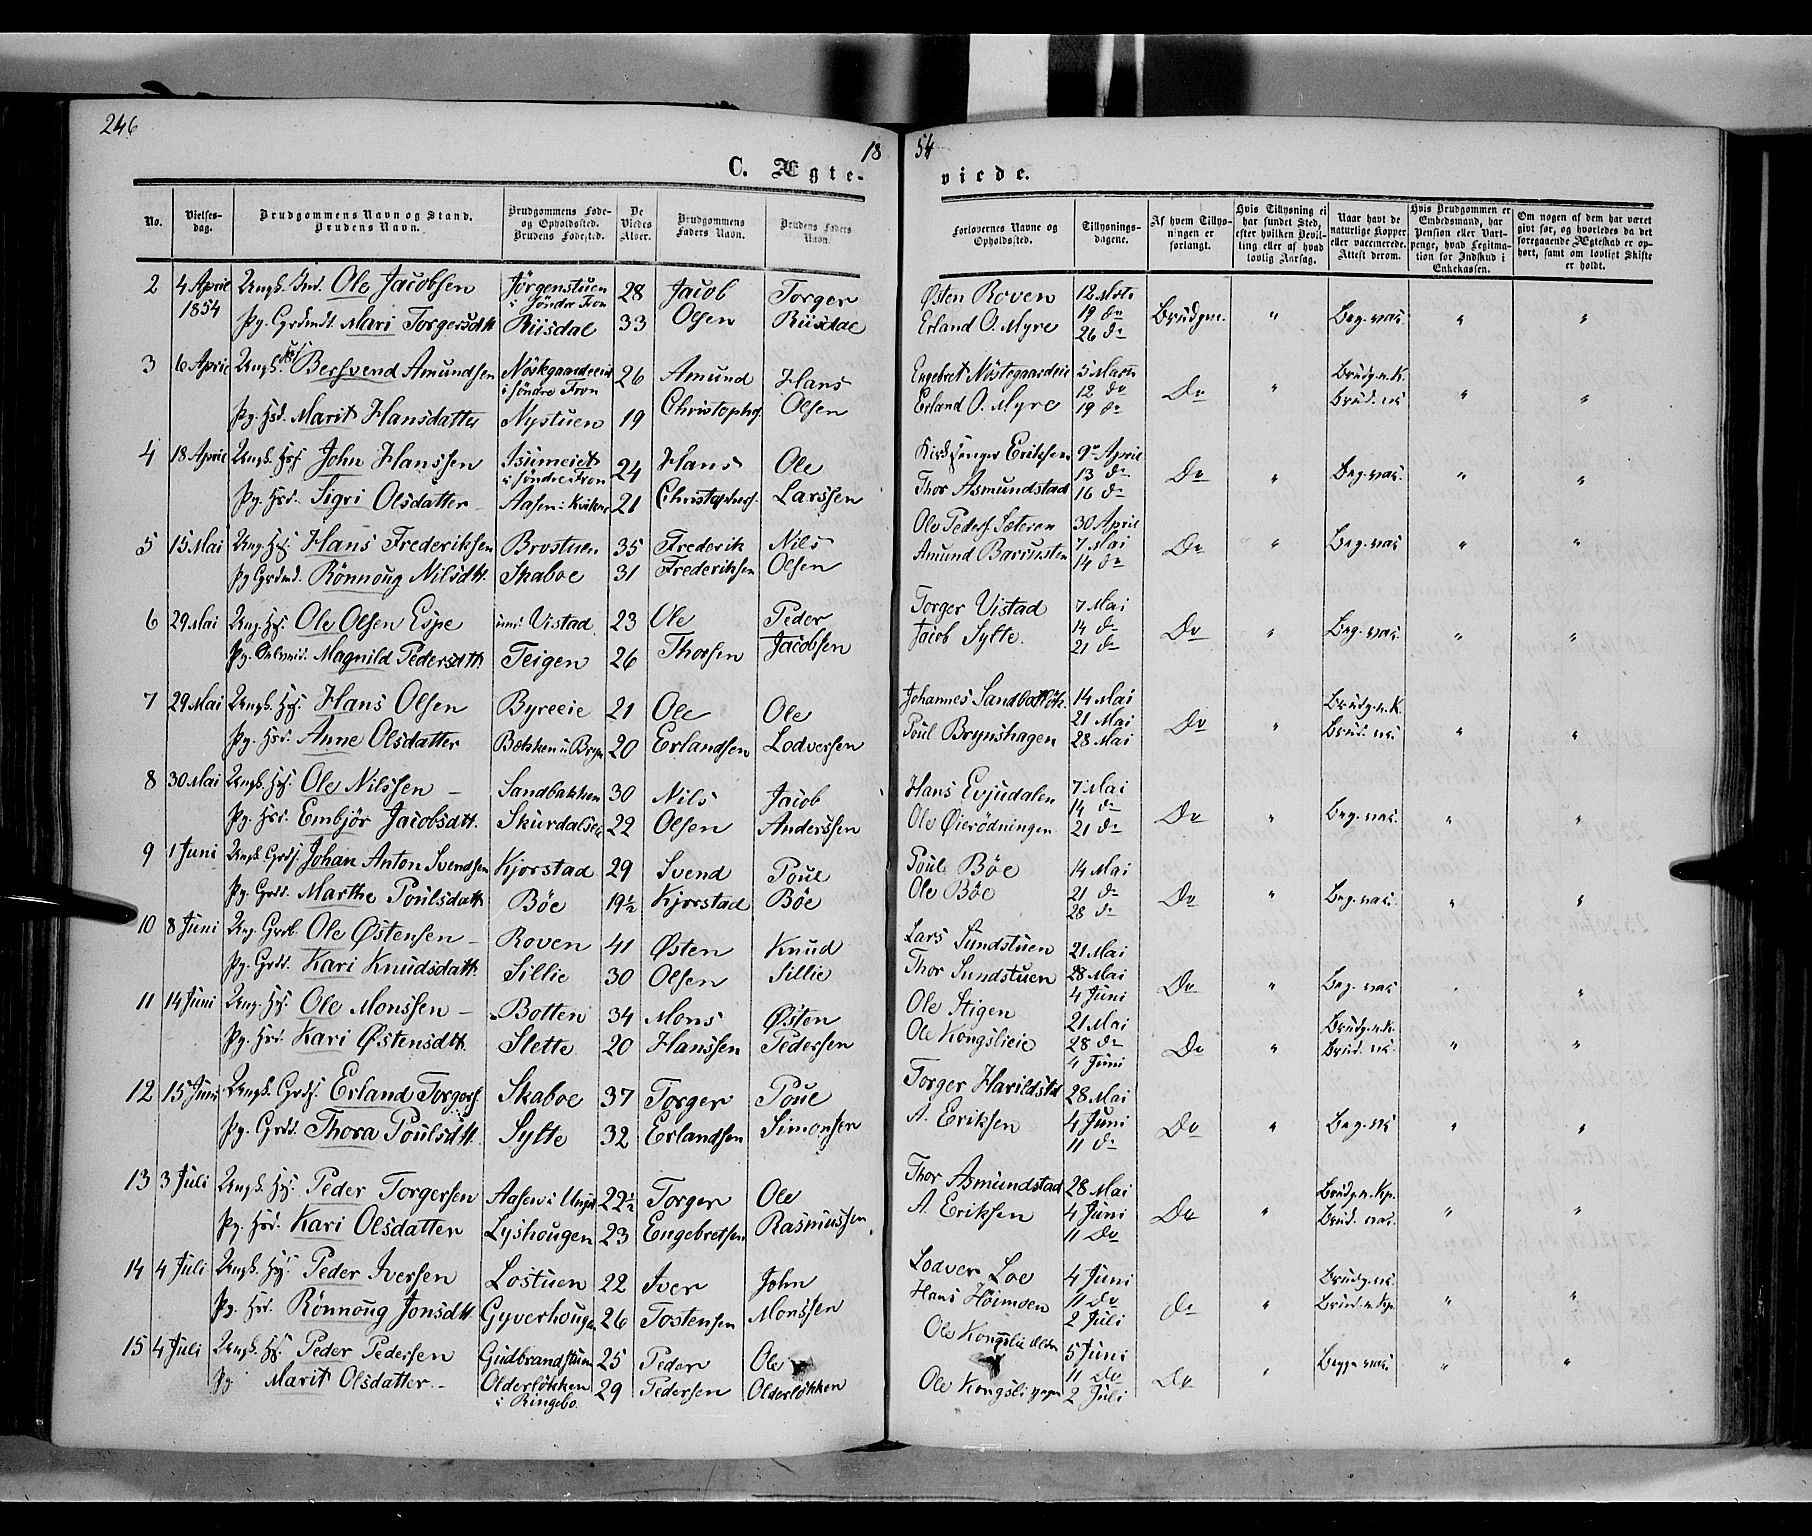 246
1854
C. Ægteviede.
No. | Vielsesdag. | Brudgommens Navn og Stand. Brudens Navn. | Brudgommens Føde- og Opholdssted. Brudens Fødested. | De Viedes Alder. | Brudgommens Faders Navn. | Brudens Faders Navn. | Forlovernes Navne og Opholdssted. | Tillysningsdagene. | Af hvem Tillysningen er forlangt. | Hvis Tillysning ei har fundet Sted, efter hvilken Bevilling eller af hvad lovlig Aarsag. | Naar havt de naturlige Kopper eller vaccinerede. Attest derom. | Hvis Brudgommen er Embedsmand, har Pension eller Vartpenge, hvad Legitimation for Indskud i Enkekassen. | Om nogen af dem har været givt før, og hvorledes da det foregaaende Ægteskab er ophørt, samt om lovligt Skifte er holdt.
2 | 4 April 1854 | Ungk. Ind. Ole Jacobsen | Jörgenstuen i Söndre Fron | 28 | Jacob | Torger | Østen Roven | 12 Mrts | Brudgm. | " | Beg. vac. | " | "
Pg. Grdmd. Mari Torgersdtt | Riisdal | 33 | Olsen | Riisdal | Erland O. Myre | 19 do 26 do
3 | 6 April | Ungk. Hsf Bersvend Amundsen | Nöstegaardeeie i Söndre Fron | 26 | Amund | Hans | Engebret Nöstegaardeie | 5 Marts | Do | " | Brudg. n. K. | " | "
Pg. Hsd. Marit Hansdatter | Nystuen | 19 | Christophs. | Olsen | Erland O. Myre | 12 do 19 do | Brud. vac
4 | 18 April | Ungk. Hsf. John Hanssen | Isumeiet i Söndre Fron | 24 | Hans | Ole | Kirkesanger Eriksen | 9de April | Do | " | Beg. vac. | " | "
Pg. Hsd. Sigri Olsdatter | Aasen i Kvikne | 21 | Christophers. | Larssen | Thor Asmundstad | 13 do 16 do
5 | 15 Mai | Ung. Hsf. Hans Frederiksen | Brostuen | 35 | Frederik | Nils | Ole Peders. Sæteren | 30 April | Do | " | Beg. vac. | " | "
Pg Grdmd. Rönnoug Nilsdtt. | Skaboe | 31 | Frederiksen | Olsen | Amund Barrusten | 7 Mai 14 do
6 | 29 Mai | Ung. Hsf. Ole Olsen Espe | Vistad | 23 | Ole | Peder | Torger Vistad | 7 Mai | Do | " | Beg. vac. | " | "
Pg. Magnild Pedersdtt. | Teigen | 26 | Thorsen | Jacobsen | Jacob Sylte. | 14 do 21 do
7 | 29 Mai | Ungk. Hsf. Hans Olsen | Byreeie | 21 | Ole | Ole | Johannes Sandbak | 14 Mai | Do | " | Brudg. n. K. | " | "
Pg. Hsd. Anne Olsdatter | Bakken u. Bryn | 20 | Erlandsen | Lodversen | Poul Brynshagen | 21 Mai 28 Mai | Brud. vac
8 | 30 Mai | Ungk. Hsf. Ole Nilssen | Sandbakken | 30 | Nils | Jacob | Hans Evjudalen | 7 Mai | Do | " | Beg. vac. | " | "
Pg. Hsd. Embjör Jacobsdtt. | Skurdalseie | 22 | Olsen | Anderssen | Ole Øierödningen | 14 do 21 do
9 | 1 Juni | Ungk. Grdf Johan Anton Svendsen | Kjorstad | 29 | Svend | Poul | Poul Böe | 14 Mai | Do | " | Beg. vac. | " | "
Pg. Grdd. Marthe Poulsdatt. | Böe | 19½ | Kjorstad | Böe | Ole Böe | 21 do 28 do
10 | 8 Juni | Ung. Grdb. Ole Østensen | Roven | 41 | Østen | Knud | Lars Sundstuen | 21 Mai | Do | " | Beg. vac | " | "
Pg. Grdd. Kari Knudsdatt. | Sillie | 30 | Olsen | Sillie | Thor Sundstuen | 28 Mai 4 Juni
11 | 14 Juni | Ung. Hsf. Ole Monssen | Botten | 34 | Mons | Østen | Ole Stigen | 21 Mai | Do | " | Brudg. n. K. | " | "
Pg. Hsd. Kari Østensdtt. | Slette | 20 | Hanssen | Pedersen | Ole Kongslieie | 28 do 4 Juni | Brud. vac.
12 | 15 Juni | Ungk. Grdf. Erland Torgers. | Skaboe | 37 | Torger | Poul | Torger Harildstd | 28 Mai | Do | " | Beg. vac | " | "
Pg. Grdd. Thora Poulsdtt. | Sylte | 32 | Erlandsen | Simonsen | A. Eriksen | 4 Juni 11 do
13 | 3 Juli | Ungk. Hsf. Peder Torgersen | Aasen i | 22½ | Torger | Ole | Thor Asmundstad | 28 Mai | Do | " | Brudg. n. Kp. | " | "
Pg. Hsd. Kari Olsdatter | Lyshougen | 23 | Engebretsen | Rasmussen | A. Eriksen | 4 Juni 11 Do | Brud. vac.
14 | 4 Juli | Ungk. Hsf. Peder Iversen | Lostuen | 22 | Iver | John | Lodver Loe | 4 Juni | Do | " | Brudg. vac. | " | "
Pg. Hsd. Rönnoug Jonsdtt. | Gyverhougen | 26 | Tostensen | Monssen | Hans Höimoen | 11 Do 2 Juli | Brud. n. Kp.
15 | 4 Juli | Ungk. Hsf. Peder Pedersen | Gudbrandstuen | 25 | Peder | Ole | Ole Kongslie ældre | 5 Juni | Do | " | Begge vac | " | "
Pg Marit Olsdatter | Olderlökken i Ringebo | 29 | Pedersen | Olderlökken | Ole Kongsli yngre | 11 Do 2 Juli